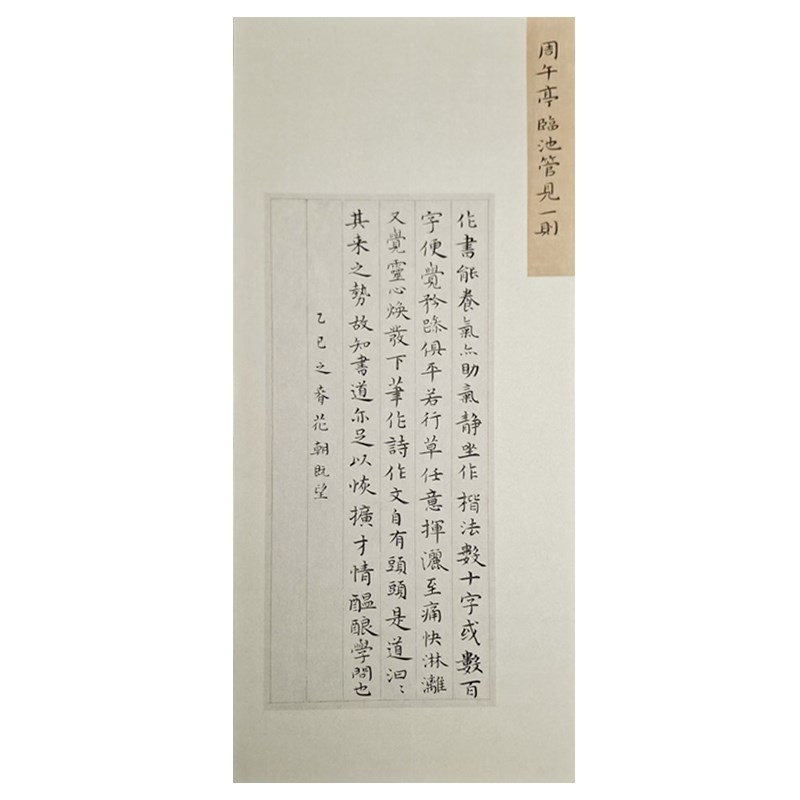 周午亭臨池管見一則
作書能養氣亦助氣靜坐作楷法數十字或數百
字便覺矜躁俱平若行草任意揮灑至痛快淋漓
又覺靈心煥發下筆作詩作文自有頭頭是道汩〻
其来之勢故知書道亦足以恢擴才情醞釀學問也
乙巳之春花朝既望